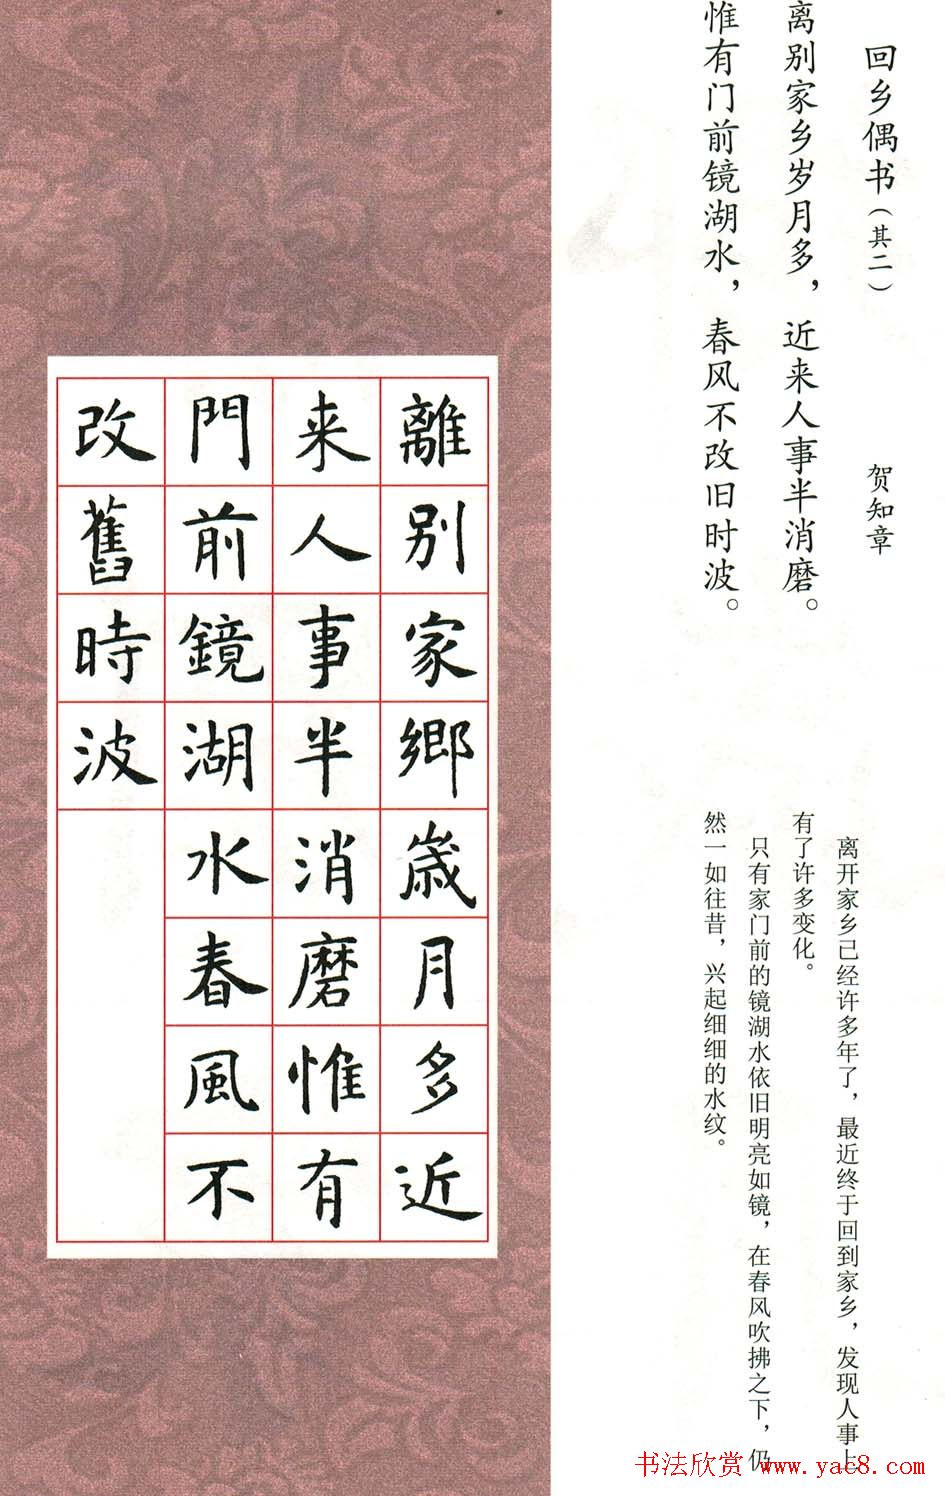 回乡偶书（其二） 贺知章
离别家乡岁月多，近来人事半消磨。
惟有门前镜湖水，春风不改旧时波。
离开家乡已经许多年了，最近终于回到家乡，发现人事上
有了许多变化。
只有家门前的镜湖水依旧明亮如镜，在春风吹拂之下，仍
然一如往昔，兴起细细的水纹。
離别家鄉歲月多近
来人事半消磨惟有
門前鏡湖水春風不
改舊時波
书法欣赏 www.yac8.com